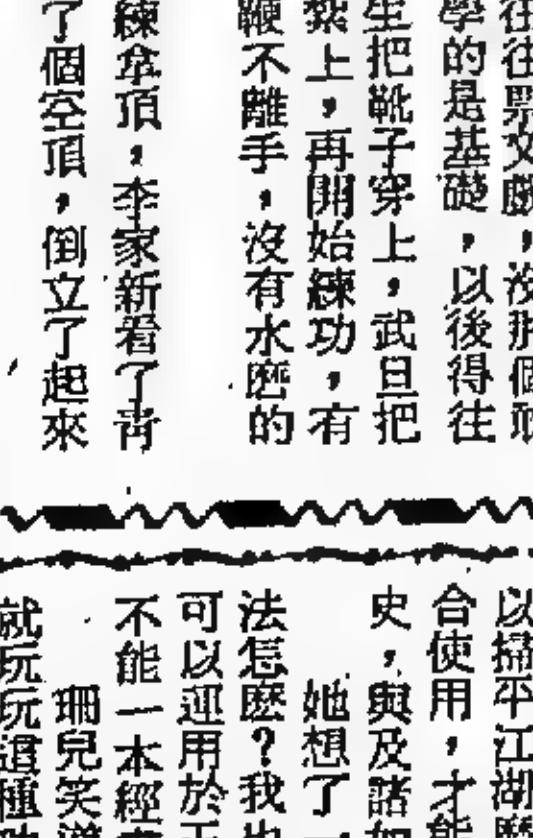 往往票文戲，沒那個
學的是基礎，以後得往
生把靴子穿上，武旦把
紮上，再開始練功，有
鞭不離手，沒有水磨的
練拿頂，李家新看了青
了個空頂，倒立了起來
以掃平江湖
合使用，才能
史，與及諸如
她想了一
法怎麼？我也
可以運用於
不能一本經
珊兒笑道
就玩玩這種